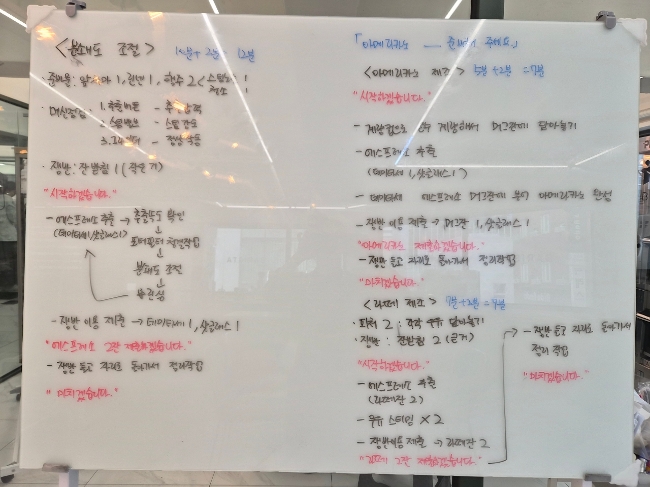 <분쇄도 조절> 10분+2분= 12분
· 준비물: 1, 린넨 1, 행주 2 <스팀용 1
청소 1
· 머신점검: 1. 추출버튼 - 추출압력
2. 스팀밸브 - 스팀압력
3. - 정상작동
· 쟁반: 잔받침 1 (작은거)
"시작하겠습니다."
- 에스프레소 추출 → 추출속도 확인
(데미타세1, 샷글래스1) ↓
포터필터 청결작업
↓
분쇄도 조절
↓
- 쟁반 이용 제출 → 데미타세 1, 샷글래스 1
"에스프레소 2잔 제출하겠습니다."
- 쟁반 들고 자리로 돌아가서 정리작업
"마치겠습니다."
「아메리카노 — 준비해 주세요」
<아메리카노 제조> 5분+2분 =7분
"시작하겠습니다."
- 계량컵으로 온수 계량해서 머그잔에 담아놓기
- 에스프레소 추출
(데미타세 1, 샷글래스 1)
- 데미타세 에스프레소 머그잔에 부어 아메리카노 완성
- 쟁반 이용 제출 → 머그잔 1, 샷글래스 1
"아메리카노 제출하겠습니다."
- 쟁반 들고 자리로 돌아가서 정리작업
"마치겠습니다."
<라떼 제조> 7분+2분=9분
· 피처 2 : 각각 우유 담아놓기
· 쟁반 : 잔받침 2 (큰거)
"시작하겠습니다."
- 에스프레소 추출
(라떼잔 2)
- 우유 스티밍 × 2
- 쟁반이용 제출 → 라떼잔 2
"라떼 2잔 제출하겠습니다."
→ - 쟁반 들고 자리로 돌아가서
정리 작업
"마치겠습니다."